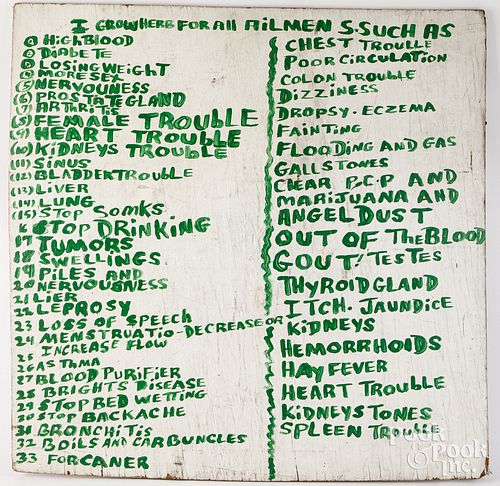 I GROW HERB FOR All AilMEN S. SUCH AS
(1) HighBlOOD
(2) DIABETE
(3) LOSING WEIGHT
(4) MORE SEX
(5) NERVOUNESS
(6) PROSTATE GLAND
(7) ARTHRITIS
(8) FEMALE TROUBLE
(9) HEART TROUBLE
(10) KIDNEYS TROUBLE
(11) SINUS
(12) BLADDER TROUBLE
(13) LIVER
(14) LUNG
(15) STOP SOMKS
16 STOP DRINKING
17 TUMORS
18 SWELLINGS
19 PILES AND
20 NERVOUSNESS
21 LIER
22 LEPROSY
23 LOSS OF SPEECH
24 MENSTRUATIO-DECREASE OR
25 INCREASE FLOW
26 ASTHMA
27 BLOOD PURIFIER
28 BRIGHTS DISEASE
29 STOP BED WETTING
30 STOP BACKACHE
31 BRONCHITIS
32 BOILS AND CARBUNCLES
33 FOR CANER
CHEST TROULLE
POOR CIRCULATION
COLON TROUBLE
DIZZINESS
DROPSY. ECZEMA
FAINTING
FLOODING AND GAS
GALLSTONES
CLEAR P.C.P AND
MARIJUANA AND
ANGEL DUST
OUT OF TheBLOOD
GOUT! TESTES
THYROID GLAND
ITCH. JAUNDICE
KIDNEYS
HEMORRHOODS
HAY FEVER
HEART TROUBLE
KIDNEYS TONES
SPLEEN TROUBLE
Pook & Pook Inc.